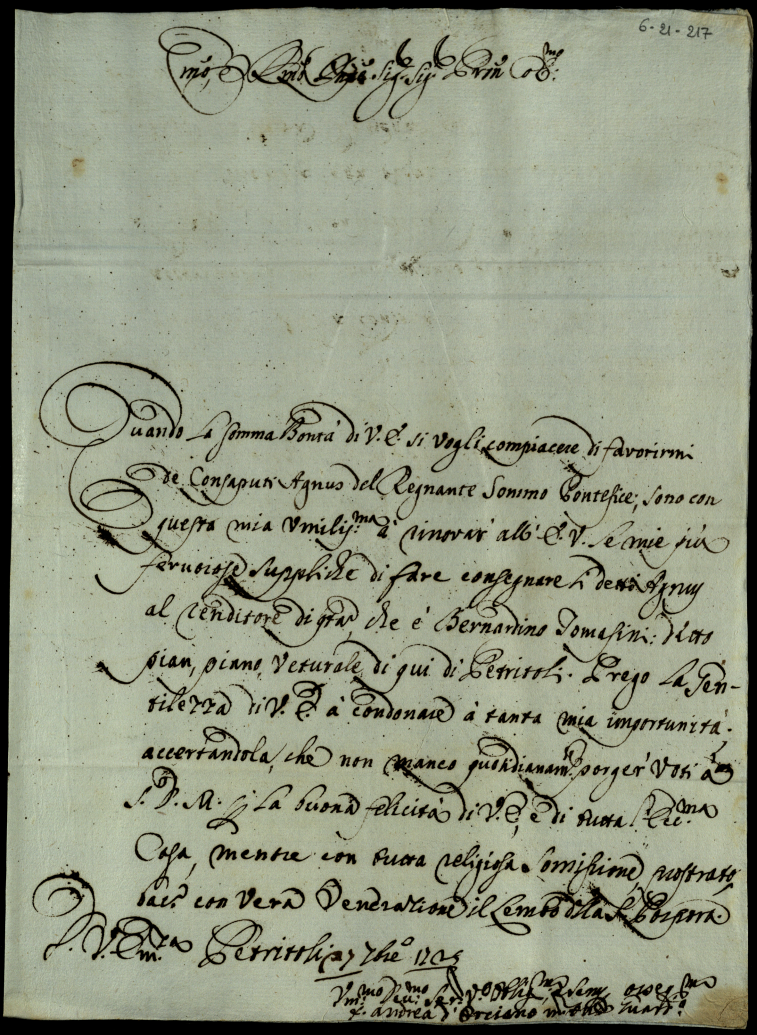 6-21-217
Em.o, e R.mo Sig. Sig. Pron Col.mo
Quando La somma Bontà di V. E. si vogli compiacere di favorirmi
de Consaputi Agnus del Regnante Sommo Pontefice, sono con
questa mia Umiliss.ma à rinovar all' E. V. le mie più
fervorose suppliche di fare consegnare li detti Agnus
al renditore di q.ta, che è Bernardino Tomasini: ditto
pian, piano, Veturale di qui di Petritoli. Prego La Gen-
tilezza di V. E. à condonare à tanta mia importunità.
accertandola, che non manco quotidianam.te porger Voti à
S. D. M. p La buona felicità di V. E. e di tutta l'Ecc.ma
Casa, mentre con tutta religiosa Somisione, prostrato,
bacio con Vera Venerazione il Lembo della S. Porpora.
D. V. Em.za Petritoli 27 7bre 1725
Um.mo Dev.mo Ser.re Obblig.mo e sem.
f. Andrea d' Orciano